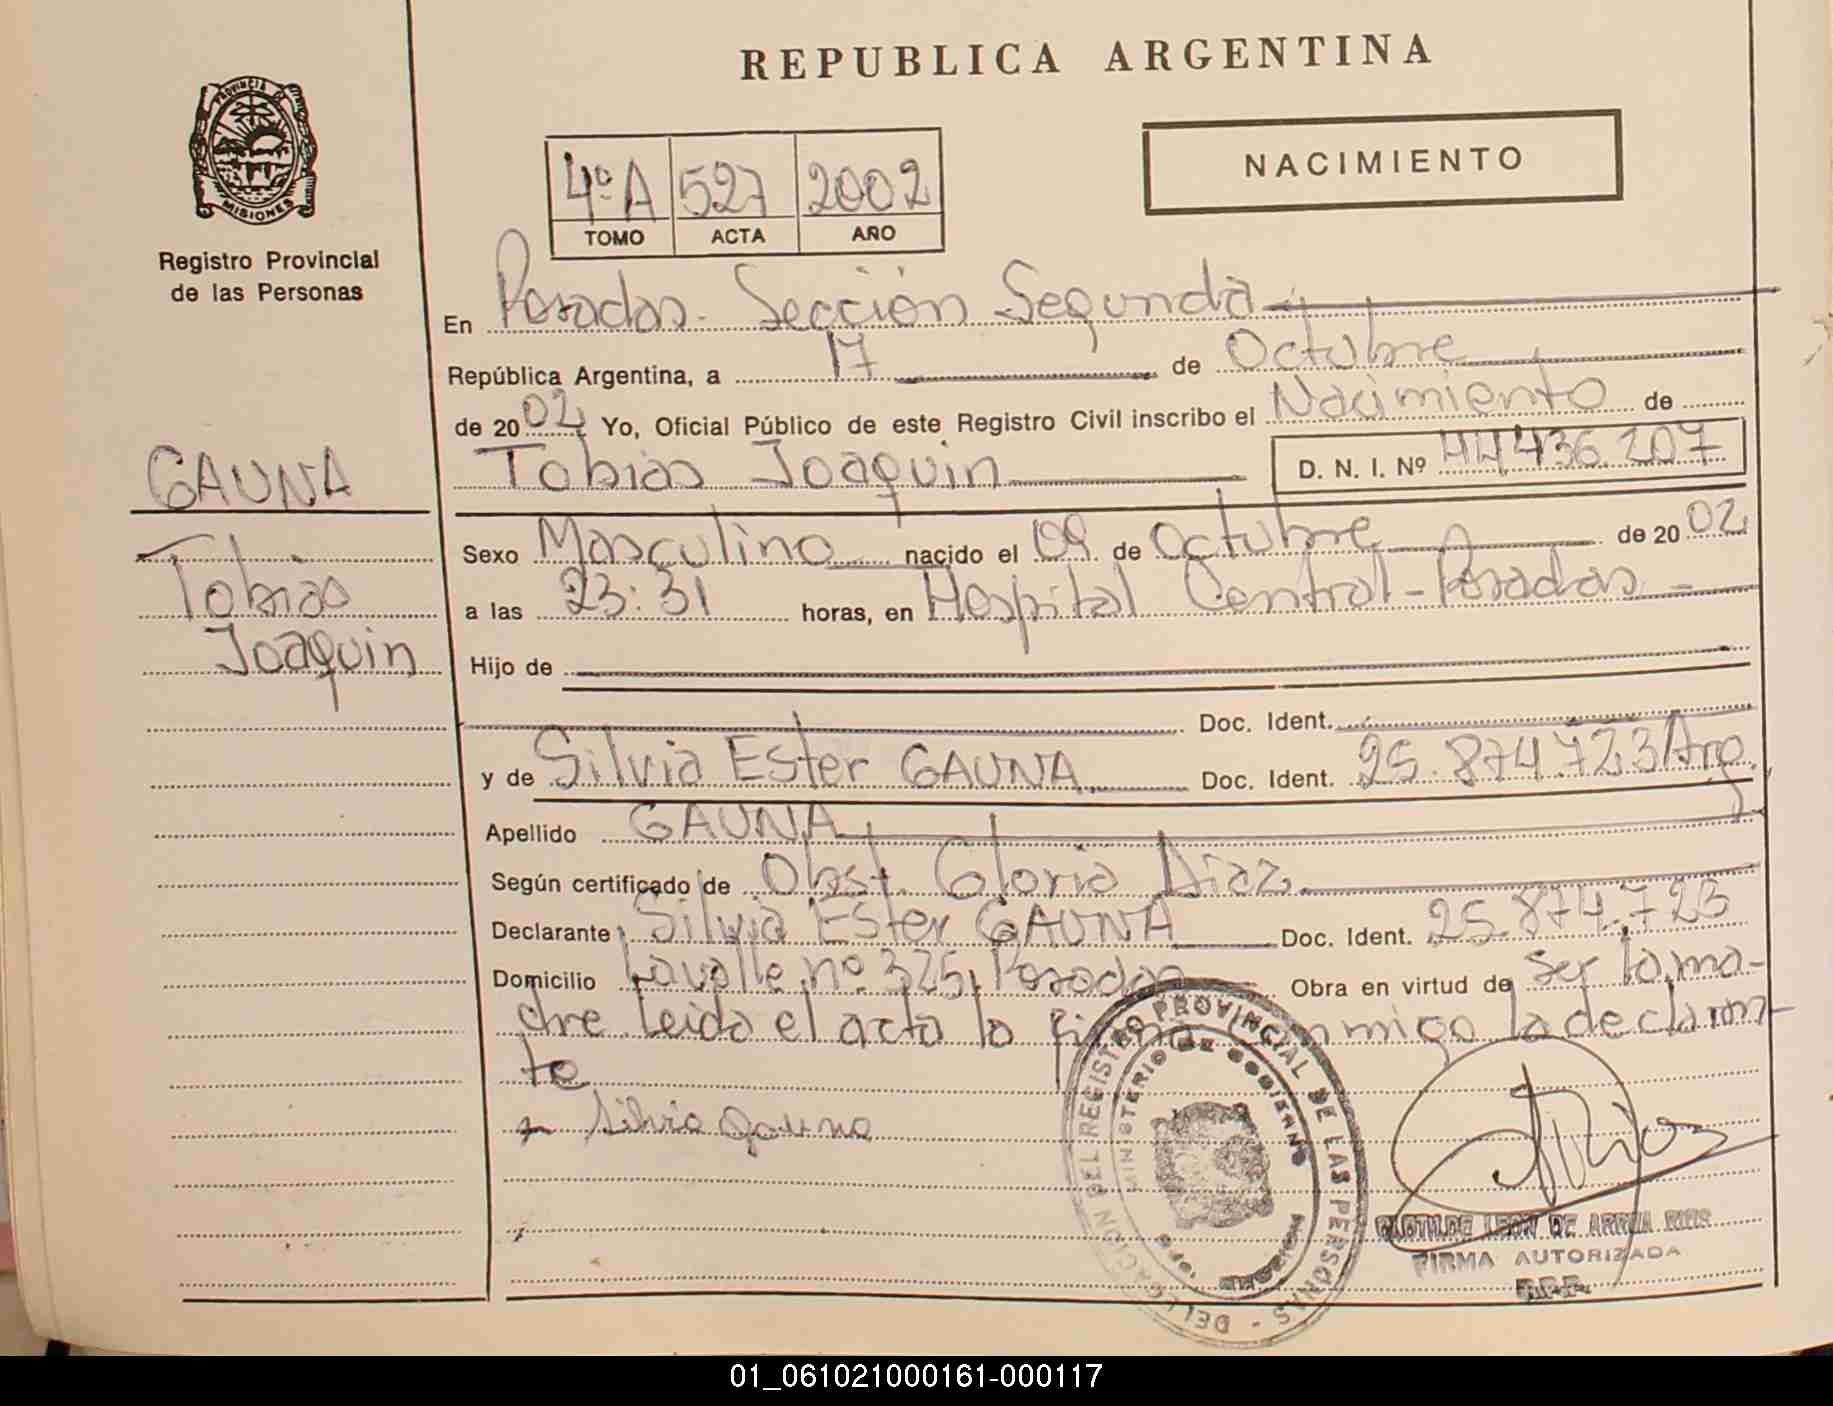 REPUBLICA ARGENTINA
PROVINCIA DE
MISIONES
Registro Provincial
de las Personas
NACIMIENTO
4º A 527 2002
TOMO ACTA AÑO
En Posadas. Sección Segunda
República Argentina, a 17 de Octubre
de 2002 Yo, Oficial Público de este Registro Civil inscribo el Nacimiento de
Tobias Joaquin D. N. I. Nº 44.436.207
GAUNA
Tobias
Joaquin
Sexo Masculino nacido el 09 de Octubre de 2002
a las 23:31 horas, en Hospital Central - Posadas
Hijo de
Doc. Ident.
y de Silvia Ester GAUNA Doc. Ident. 25.874.723 Arg.
Apellido GAUNA
Según certificado de Obst. Gloria Diaz
Declarante Silvia Ester GAUNA Doc. Ident. 25.874.723
Domicilio Lavalle nº 325, Posadas Obra en virtud de ser la ma-
dre Leido el acta lo firma conmigo la declaran-
te
Silvia Gauna
DELEGACION DEL REGISTRO PROVINCIAL DE LAS PERSONAS
MINISTERIO DE GOBIERNO
MISIONES
CLOTILDE LEON DE ARRUA RIOS
FIRMA AUTORIZADA
R.P.P.
01_061021000161-000117